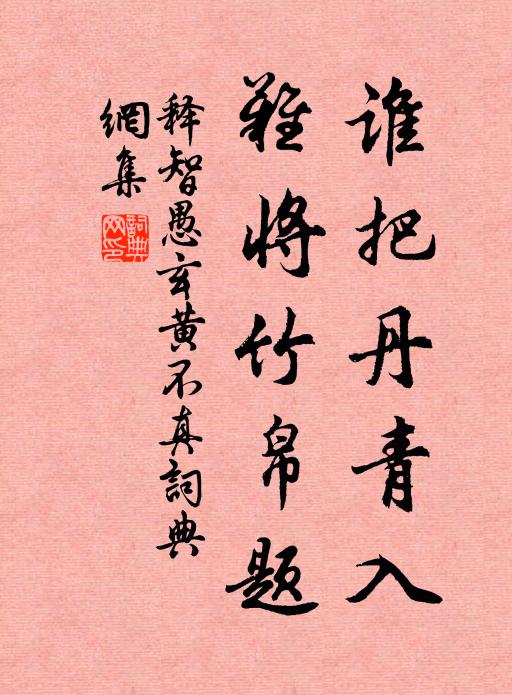 谁把丹青入
难将竹帛题
释智愚玄黄不真詞典
網集
詞典网印